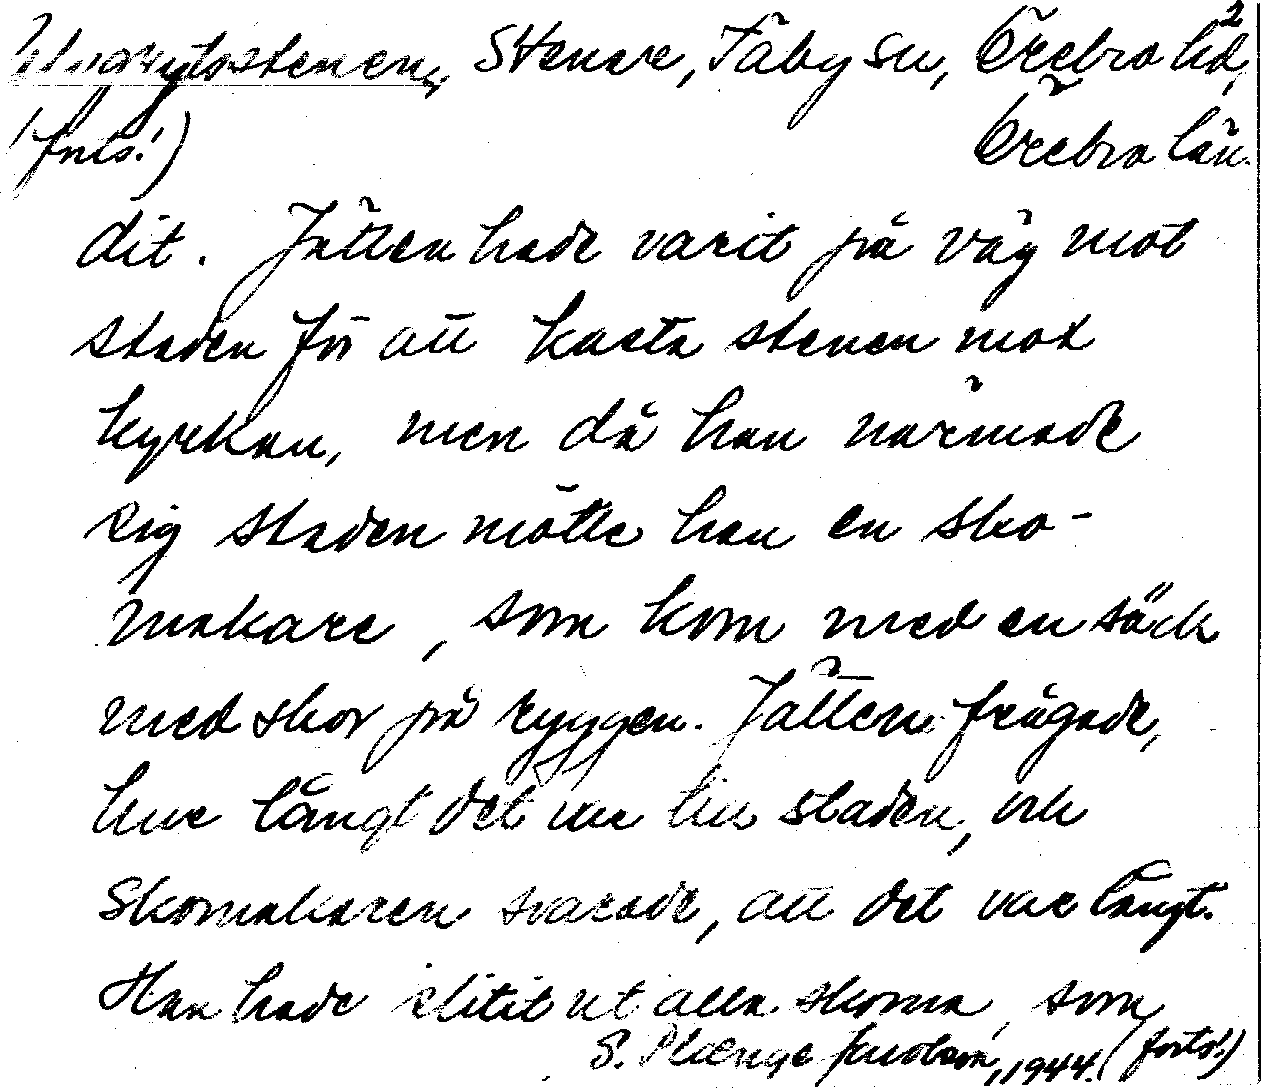 2
Stenere, Täby sn, Örebro hd,
(forts!) Örebro län.
dit. Jätten hade varit på väg mot
staden för att kasta stenen mot
kyrkan, men då han närmade
sig staden mötte han en sko-
makare, som kom med en säck
med skor på ryggen. Jätten frågade,
hur långt det var till staden, och
skomakaren svarade, att det var långt.
Han hade slitit ut alla skorna, som
S. Plænge Jacobson, 1944. (forts!)